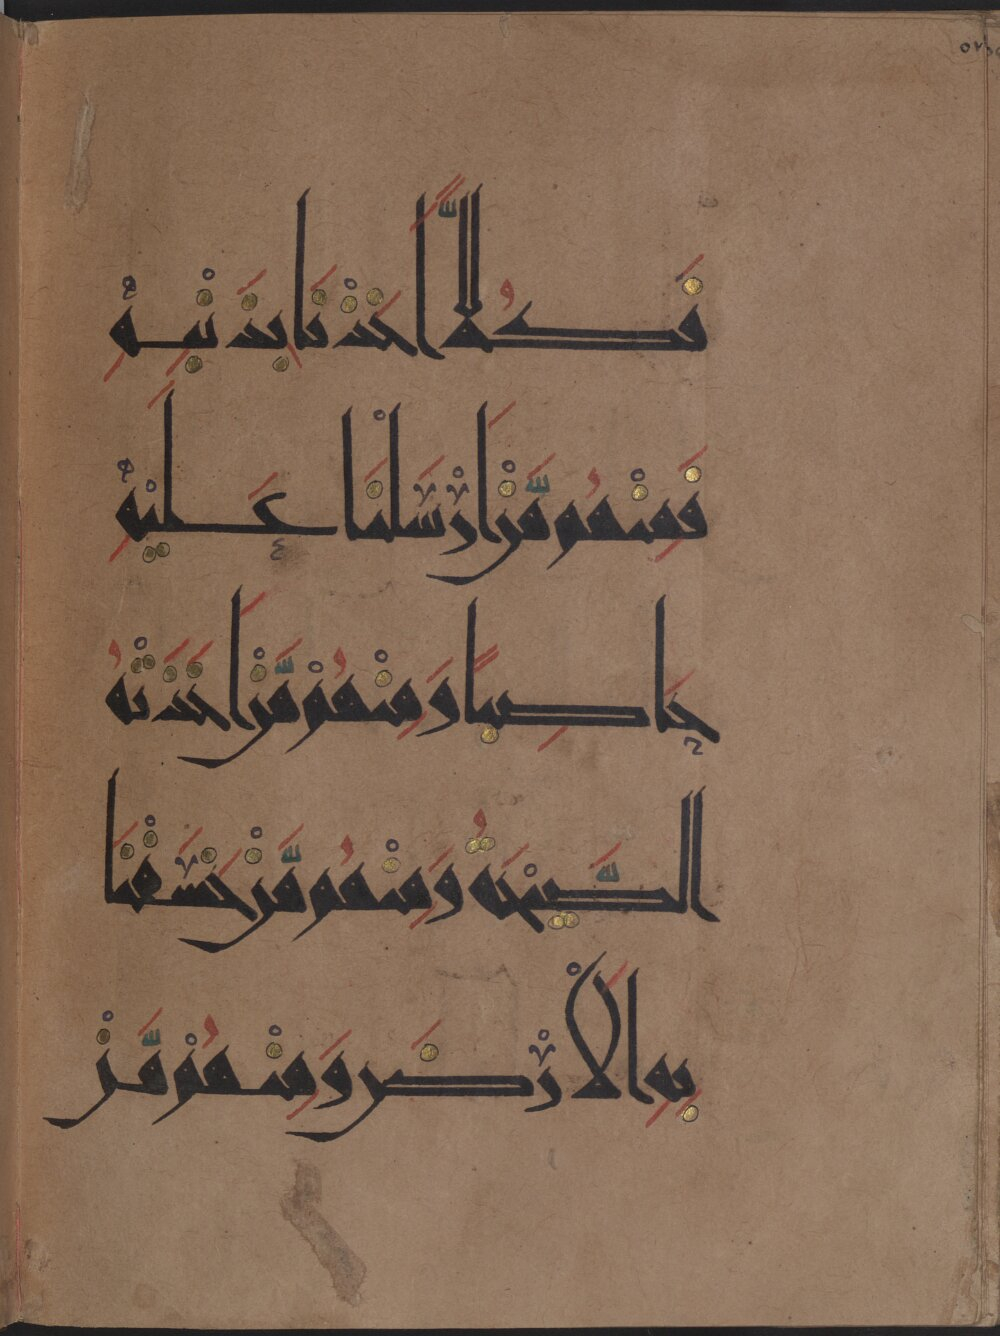 فَكُلًّا اَخَذْنَا بِذَنْبِهِ
فَمِنْهُم مَّنْ اَرْسَلْنَا عَلَيْهِ
حَاصِبًا وَمِنْهُمْ مَّنْ اَخَذَتْهُ
الصَّيْحَةُ وَمِنْهُم مَّنْ خَسَفْنَا
بِهِ الْاَرْضَ وَمِنْهُمْ مَّنْ